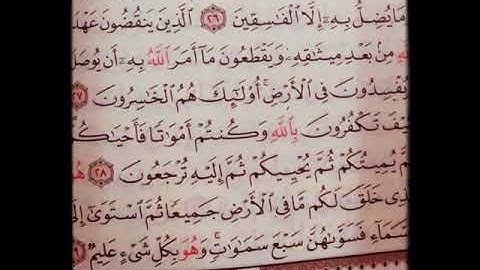 مَا يُضِلُّ بِهِۦٓ إِلَّا ٱلْفَـٰسِقِينَ ٢٦ ٱلَّذِينَ يَنقُضُونَ عَهْدَ
مِنۢ بَعْدِ مِيثَـٰقِهِۦ وَيَقْطَعُونَ مَآ أَمَرَ ٱللَّهُ بِهِۦٓ أَن يُوصَلَ
يُفْسِدُونَ فِى ٱلْأَرْضِ ۚ أُو۟لَـٰٓئِكَ هُمُ ٱلْخَـٰسِرُونَ ٢٧
تَكْفُرُونَ بِٱللَّهِ وَكُنتُمْ أَمْوَٰتًا فَأَحْيَـٰكُمْ
يُمِيتُكُمْ ثُمَّ يُحْيِيكُمْ ثُمَّ إِلَيْهِ تُرْجَعُونَ ٢٨
خَلَقَ لَكُم مَّا فِى ٱلْأَرْضِ جَمِيعًا ثُمَّ ٱسْتَوَىٰٓ إِلَى
فَسَوَّىٰهُنَّ سَبْعَ سَمَـٰوَٰتٍ ۚ وَهُوَ بِكُلِّ شَىْءٍ عَلِيمٌ